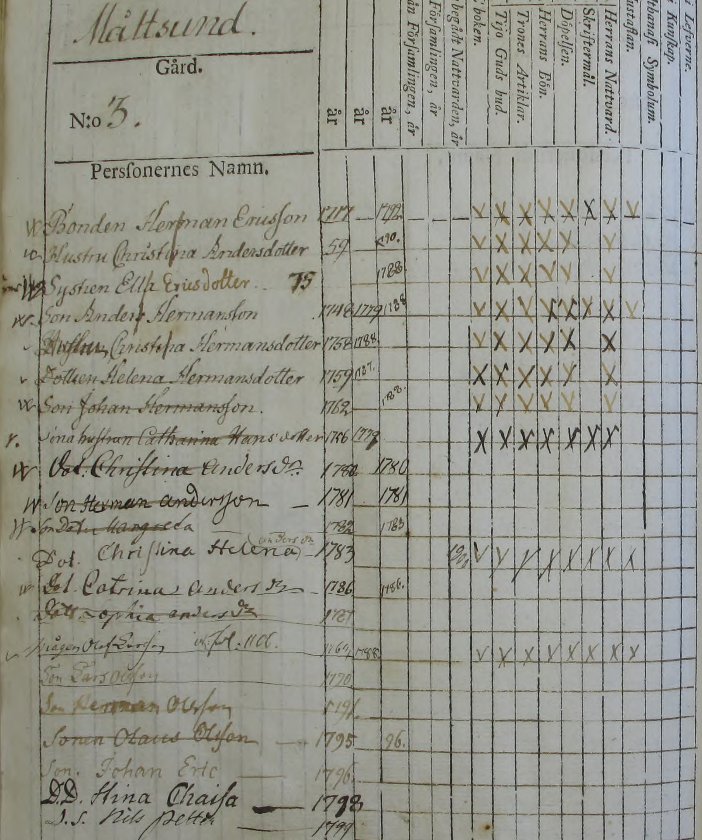 Måttsund.
Gård.
N:o 3.
Perſonernes Namn.
år
år
år
från Förſamlingen, år
Förſamlingen, år
begådt Nattvarden, år
boken.
Tijo Guds bud.
Trones Artiklar.
Herrans Bön.
Döpelſen.
Skriftermål.
Herrans Nattvard.
Hustaflan.
Athanaſi Symbolum.
i Kunſkap.
i Lefverne.
Bonden Herman Ericsson 1717 1792
Hustru Christina Andersdotter 59 90.
Systren Ella Ericsdotter 75 1788
Son Anders Hermansson 1748 1779 1788
Hustru Christina Hermansdotter 1758 1788
Helena Hermansdotter 1759 1787.
Son Johan Hermansson. 1762 1788.
hustrun Catharina Hansdotter 1756
Dot. Christina Andersdr. 1780 1780
Son Herman Andersson 1781 1781
Margreta 1782 1783
Dot. Christina Helena Andersdr 1783
Dot. Catrina Anders dr 1786 1786.
Sophia Anders dr 1787
Mågen Olof Larsson fol. 1788
Son Lars Olsson 1770
Son Herman Olsson 1791.
Sonen Olaus Olsson 1795 96.
Son. Johan Eric 1796.
D.D. Stina Chaisa 1798
D.S. Nils Petter 1799